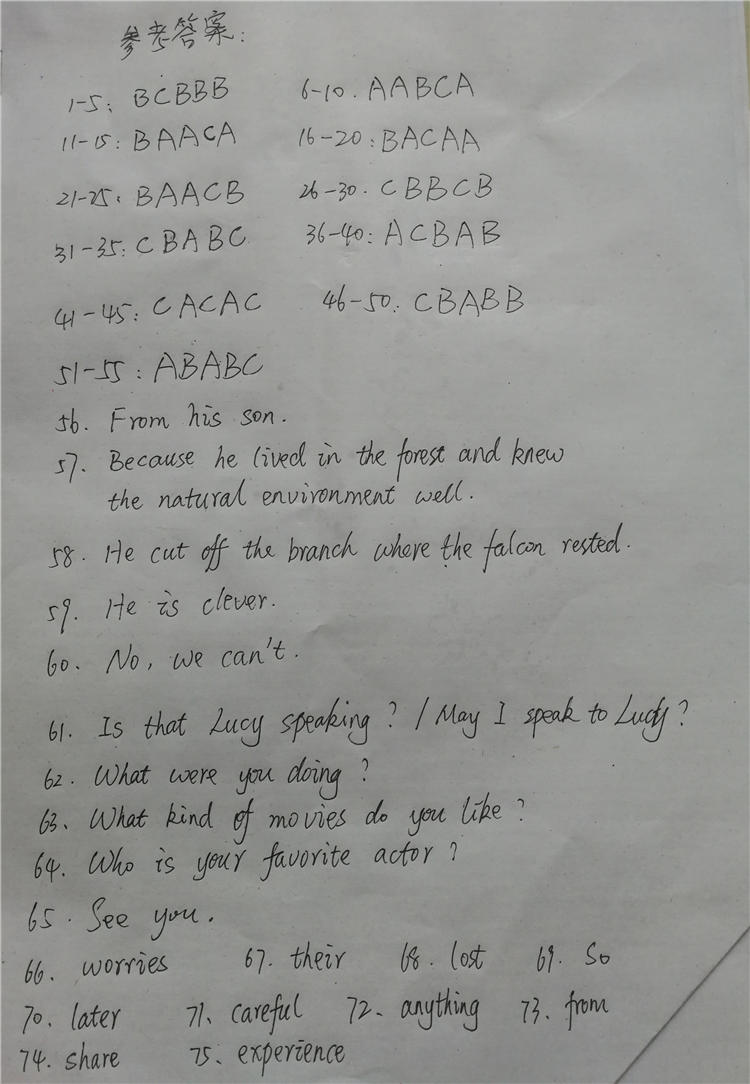 参考答案:
1-5: BCBBB 6-10. AABCA
11-15: BAACA 16-20: BACAA
21-25. BAACB 26-30. CBBCB
31-35: CBABC 36-40: ACBAB
41-45: CACAC 46-50: CBABB
51-55: ABABC
56. From his son.
57. Because he lived in the forest and knew
the natural environment well.
58. He cut off the branch where the falcon rested.
59. He is clever.
60. No, we can't.
61. Is that Lucy speaking? / May I speak to Lucy?
62. What were you doing?
63. What kind of movies do you like?
64. Who is your favorite actor?
65. See you.
66. worries 67. their 68. lost 69. So
70. later 71. careful 72. anything 73. from
74. share 75. experience